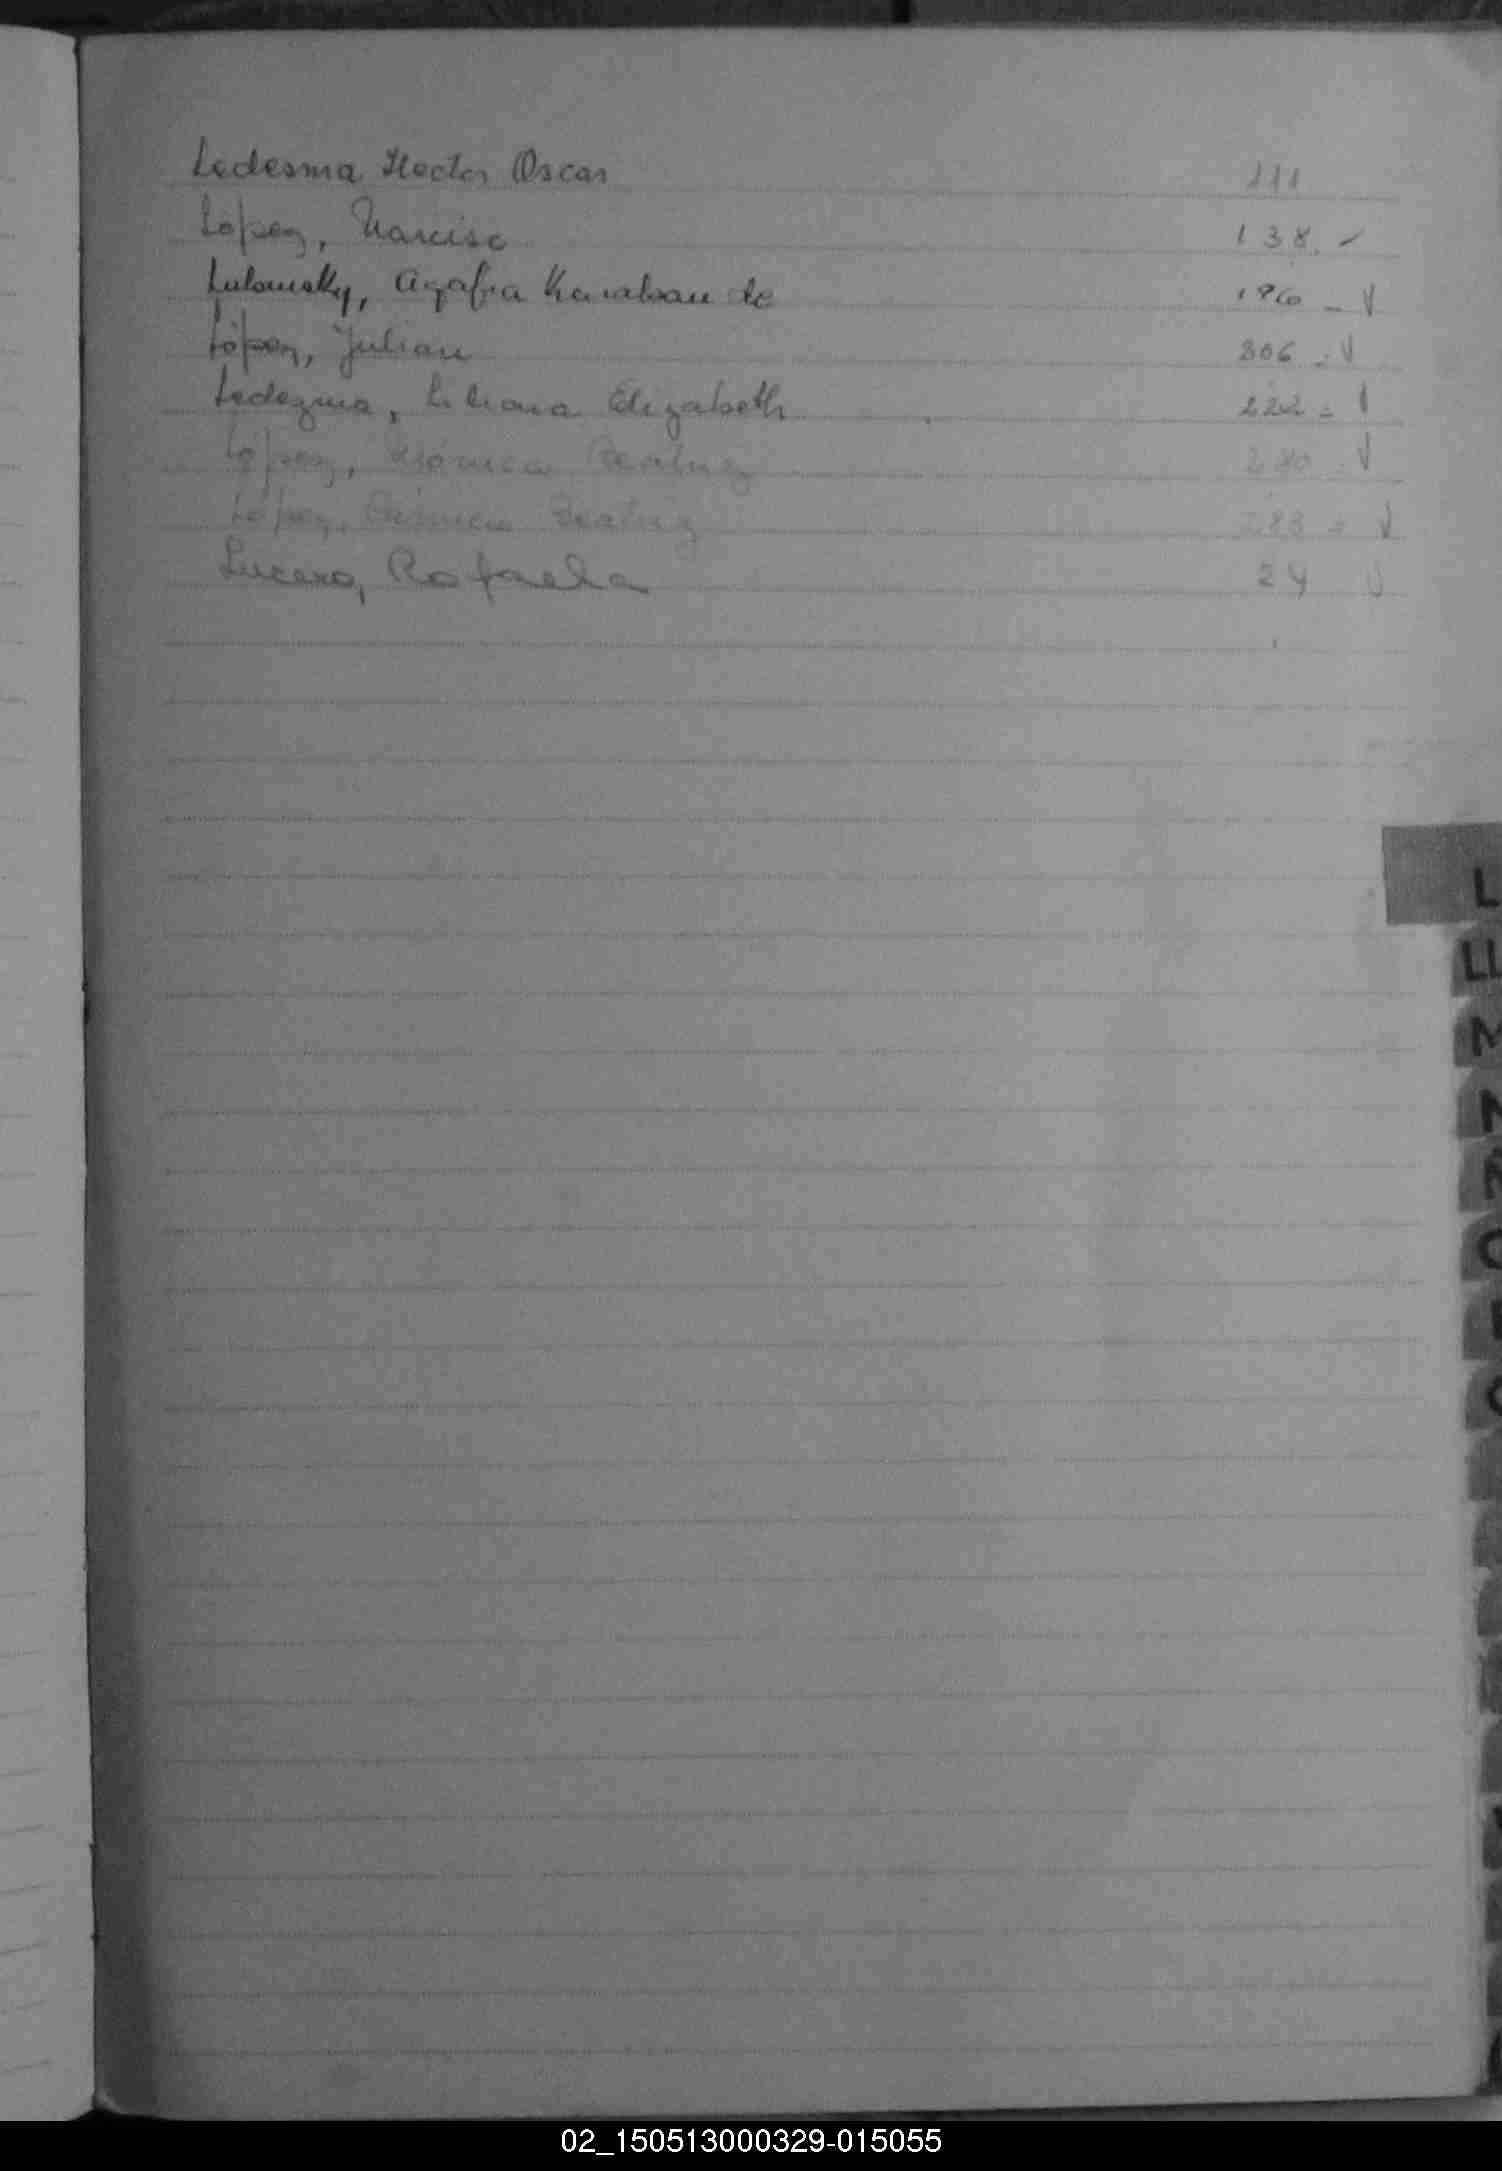 Ledesma Hector Oscar 111
López, Narciso 138. ✓
Agafia de 196 - ✓
López, Julian 206 - ✓
Ledezma, Liliana Elizabeth 222 - ✓
López, Mónica Beatriz 280 - ✓
López, Mónica Beatriz 283 - ✓
Lucero, Rafaela 24 ✓
L
LL
M
N
02_150513000329-015055